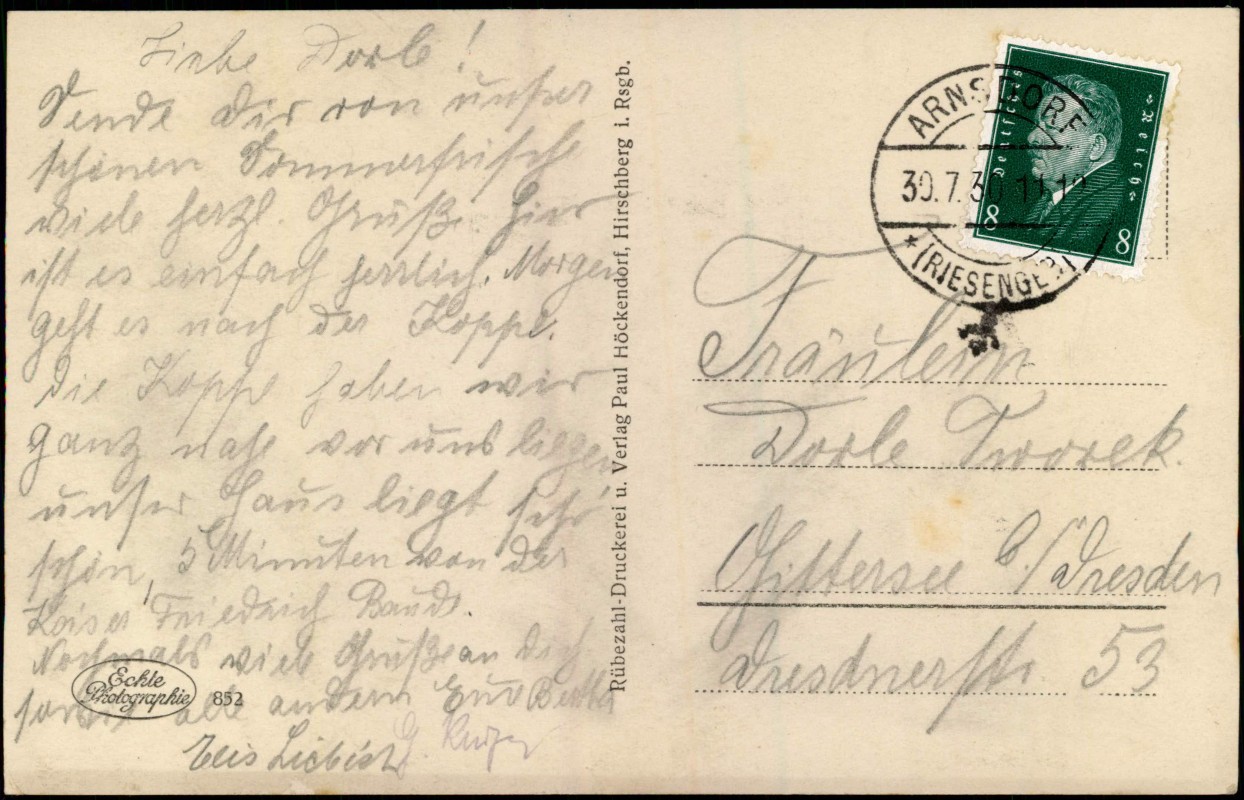 Liebe Dorle!
Sende Dir von unsrer
schönen Sommerfrische
viele herzl. Grüße. Hier
ist es einfach herrlich. Morgen
geht es nach der Koppe.
Die Koppe haben wir
ganz nahe vor uns liegen
unser Haus liegt sehr
schön, 5 Minuten von der
Kaiser Friedrich Baude.
Nochmals viele Grüße an Dich
sowie alle andern
Liebist
Echte
Photographie
852
Rübezahl-Druckerei u. Verlag Paul Höckendorf, Hirschberg i. Rsgb.
ARNSDORF
30.7.30 11-12
* (RIESENGEB.)
Deutsches Reich
8 8
Fräulein
Dorle Tworek.
Gittersee b./Dresden
Dresdnerstr. 53